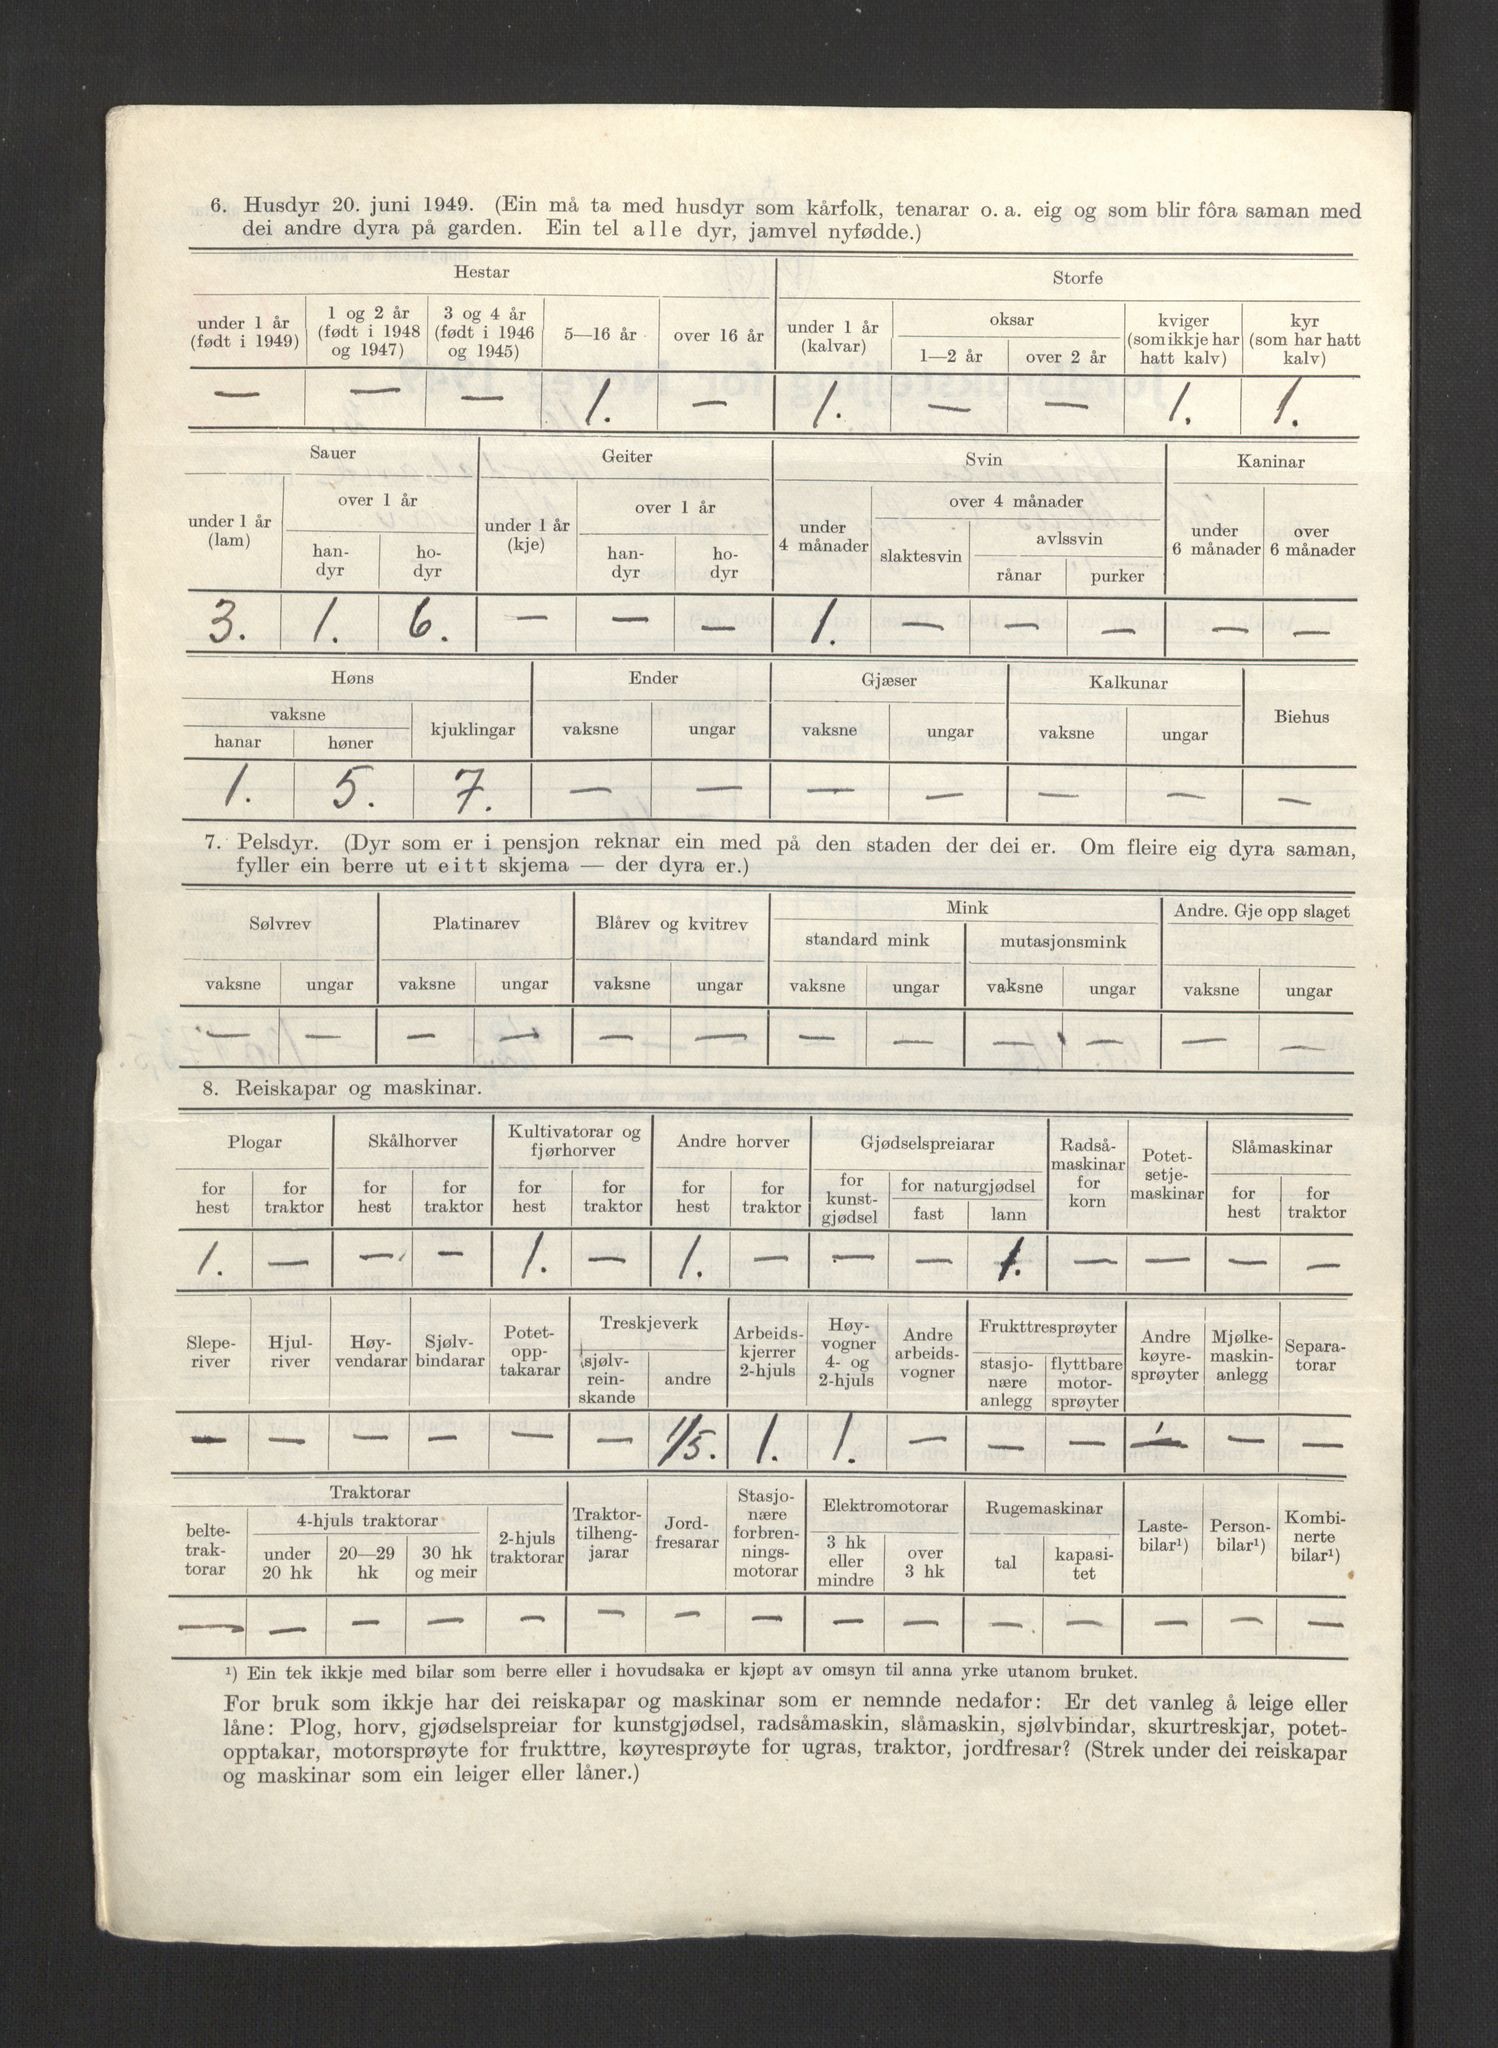 6. Husdyr 20. juni 1949. (Ein må ta med husdyr som kårfolk, tenarar o. a. eig og som blir fôra saman med
dei andre dyra på garden. Ein tel alle dyr, jamvel nyfødde.)
Hestar Storfe
under 1 år (født i 1949) 1 og 2 år (født i 1948 og 1947) 3 og 4 år (født i 1946 og 1945) 5—16 år over 16 år under 1 år (kalvar) oksar 1—2 år over 2 år kviger (som ikkje har hatt kalv) kyr (som har hatt kalv)
— — — 1. — 1. — — 1. 1.
Sauer Geiter Svin Kaninar
under 1 år (lam) over 1 år han-dyr ho-dyr under 1 år (kje) over 1 år han-dyr ho-dyr under 4 månader over 4 månader slaktesvin avlssvin rånar purker under 6 månader over 6 månader
3. 1. 6. — — — 1. — — — — —
Høns Ender Gjæser Kalkunar Biehus
vaksne hanar høner kjuklingar vaksne ungar vaksne ungar vaksne ungar
1. 5. 7. — — — — — — —
7. Pelsdyr. (Dyr som er i pensjon reknar ein med på den staden der dei er. Om fleire eig dyra saman,
fyller ein berre ut eitt skjema — der dyra er.)
Sølvrev Platinarev Blårev og kvitrev Mink Andre. Gje opp slaget
standard mink mutasjonsmink
vaksne ungar vaksne ungar vaksne ungar vaksne ungar vaksne ungar vaksne ungar
— — — — — — — — — — — —
8. Reiskapar og maskinar.
Plogar Skålhorver Kultivatorar og fjørhorver Andre horver Gjødselspreiarar Radså-maskinar for korn Potet-setje-maskinar Slåmaskinar
for hest for traktor for hest for traktor for hest for traktor for hest for traktor for kunst-gjødsel for naturgjødsel fast lann for hest for traktor
1. — — — 1. — 1. — — — 1. — — — —
Slepe-river Hjul-river Høy-vendarar Sjølv-bindarar Potet-opp-takarar Treskjeverk sjølv-rein-skande andre Arbeids-kjerrer 2-hjuls Høy-vogner 4- og 2-hjuls Andre arbeids-vogner Frukttresprøyter stasjo-nære anlegg flyttbare motor-sprøyter Andre køyre-sprøyter Mjølke-maskin-anlegg Separa-torar
— — — — — — 1/5. 1. 1. — — — — — —
Traktorar
belte-trak-torar 4-hjuls traktorar under 20 hk 20—29 hk 30 hk og meir 2-hjuls traktorar Traktor-tilheng-jarar Jord-fresarar Stasjo-nære forbren-nings-motorar Elektromotorar 3 hk eller mindre over 3 hk Rugemaskinar tal kapasi-tet Laste-bilar¹) Person-bilar¹) Kombi-nerte bilar¹)
— — — — — — — — — — — — — — —
¹) Ein tek ikkje med bilar som berre eller i hovudsaka er kjøpt av omsyn til anna yrke utanom bruket.
For bruk som ikkje har dei reiskapar og maskinar som er nemnde nedafor: Er det vanleg å leige eller
låne: Plog, horv, gjødselspreiar for kunstgjødsel, radsåmaskin, slåmaskin, sjølvbindar, skurtreskjar, potet-
opptakar, motorsprøyte for frukttre, køyresprøyte for ugras, traktor, jordfresar? (Strek under dei reiskapar
og maskinar som ein leiger eller låner.)